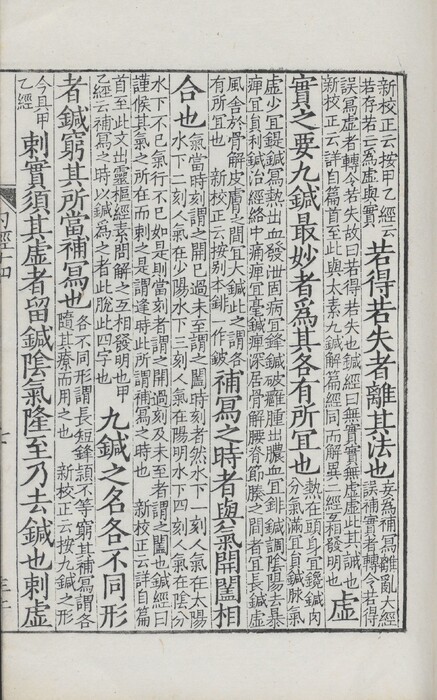 新校正云按甲乙經云
若存若亡為虛與實
若得若失者離其法也
妄為補寫離亂大經
誤補實者轉令若得
誤寫虛者轉令若失故曰若得若失也鍼經曰無實實無虛虛此其誡也
新校正云詳自篇首至此與太素九鍼解篇經同而解異二經互相發明也
虛
實之要九鍼最妙者為其各有所宜也
熱在頭身宜鑱鍼肉
分氣滿宜員鍼脈氣
虛少宜鍉鍼寫熱出血發泄固病宜鋒鍼破癰腫出膿血宜鈹鍼調陰陽去暴
痺宜員利鍼治經絡中痛痺宜毫鍼痺深居骨解腰脊節腠之間者宜長鍼虛
風舍於骨解皮膚之間宜大鍼此之謂各
有所宜也 新校正云按别本鈹一作鈚
補寫之時者與氣開闔相
合也
氣當時刻謂之開已過未至謂之闔時刻者然水下一刻人氣在太陽
水下二刻人氣在少陽水下三刻人氣在陽明水下四刻人氣在陰分
水下不已氣行不已如是則當刻者謂之開過刻及未至者謂之闔也鍼經曰
謹候其氣之所在而刺之是謂逢時此所謂補寫之時也 新校正云詳自篇
首至此文出靈樞經素問解之互相發明也甲
乙經云補寫之時以鍼為之者此脫此四字也
九鍼之名各不同形
者鍼窮其所當補寫也
各不同形謂長短鋒穎不等窮其補寫謂各
隨其療而用之也 新校正云按九鍼之形
今具甲
乙經
刺實須其虛者留鍼陰氣隆至乃去鍼也刺虛